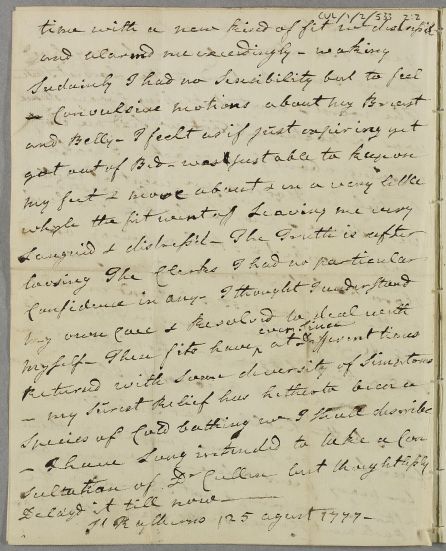 CUL/1/2/533 2:2
time with a new kind of fit wt distress'd
and alarmd me exceedingly - waking
Sudainly I had no Sensibility but to feel
Convulsive motions about my Breast
and Belly - I feelt as if just expiring yet
got out of Bed - was just able to keep on
my feet & move about & in a very little
while the fit went of Leaving me very
Languid & distress'd - The Truth is after
loosing The Clerks I had no particular
Confidence in any - I thought I understand
my own Case & Resolvd to deal with
myself - These fits have ever since at different times
Returnd with some diversity of Simptoms
- my Surest Relief has hitherto been a
Species of Cold bathing wc I shall describe
- I have Long intended to take a Con
sultation of Dr Cullen but thoughtlessly
Delayd it till now
25 agust 1777 -